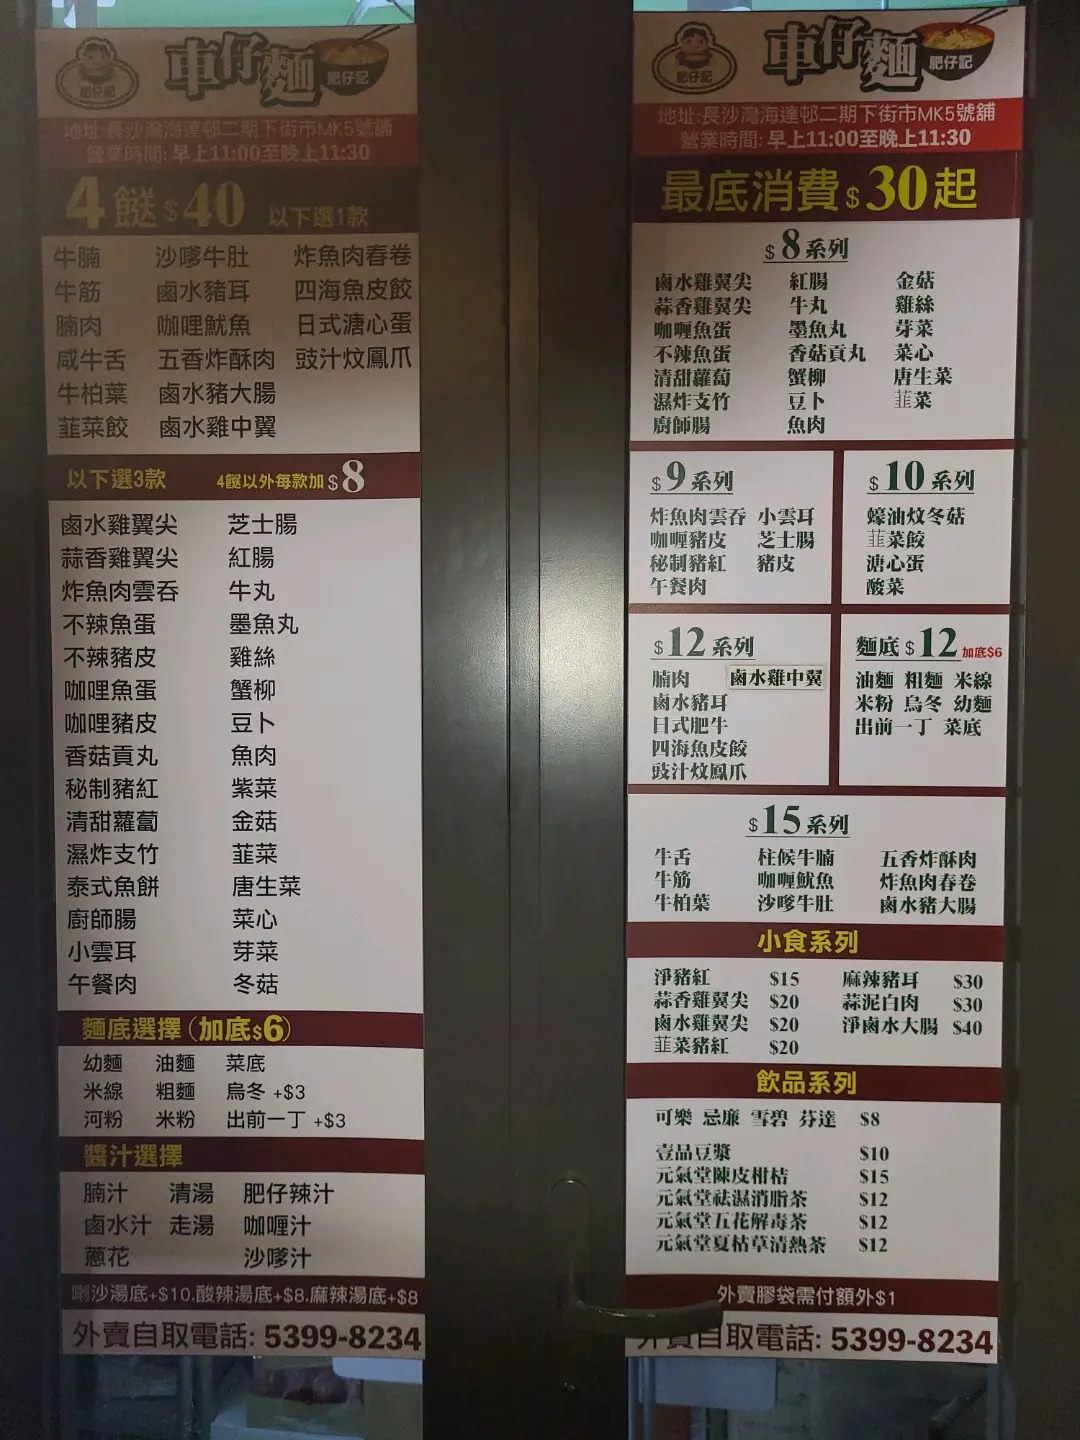 肥仔記
車仔麵
肥仔記
地址:長沙灣海達邨二期下街市MK5號舖
營業時間: 早上11:00至晚上11:30
4餸$40 以下選1款
牛腩 沙嗲牛肚 炸魚肉春卷
牛筋 鹵水豬耳 四海魚皮餃
腩肉 咖哩魷魚 日式溏心蛋
咸牛舌 五香炸酥肉 豉汁炆鳳爪
牛柏葉 鹵水豬大腸
韮菜餃 鹵水雞中翼
以下選3款 4餸以外每款加$8
鹵水雞翼尖 芝士腸
蒜香雞翼尖 紅腸
炸魚肉雲吞 牛丸
不辣魚蛋 墨魚丸
不辣豬皮 雞絲
咖哩魚蛋 蟹柳
咖哩豬皮 豆卜
香菇貢丸 魚肉
秘制豬紅 紫菜
清甜蘿蔔 金菇
濕炸支竹 韮菜
泰式魚餅 唐生菜
廚師腸 菜心
小雲耳 芽菜
午餐肉 冬菇
麵底選擇(加底$6)
幼麵 油麵 菜底
米線 粗麵 烏冬 +$3
河粉 米粉 出前一丁 +$3
醬汁選擇
腩汁 清湯 肥仔辣汁
鹵水汁 走湯 咖喱汁
蔥花 沙嗲汁
喇沙湯底+$10.酸辣湯底+$8.麻辣湯底+$8
外賣自取電話: 5399-8234
肥仔記
車仔麵
肥仔記
地址:長沙灣海達邨二期下街市MK5號舖
營業時間: 早上11:00至晚上11:30
最底消費$30起
$8系列
鹵水雞翼尖 紅腸 金菇
蒜香雞翼尖 牛丸 雞絲
咖喱魚蛋 墨魚丸 芽菜
不辣魚蛋 香菇貢丸 菜心
清甜蘿蔔 蟹柳 唐生菜
濕炸支竹 豆卜 韮菜
廚師腸 魚肉
$9系列
炸魚肉雲吞 小雲耳
咖喱豬皮 芝士腸
秘制豬紅 豬皮
午餐肉
$10系列
蠔油炆冬菇
韮菜餃
溏心蛋
酸菜
$12系列
腩肉 鹵水雞中翼
鹵水豬耳
日式肥牛
四海魚皮餃
豉汁炆鳳爪
麵底$12 加底$6
油麵 粗麵 米線
米粉 烏冬 幼麵
出前一丁 菜底
$15系列
牛舌 柱候牛腩 五香炸酥肉
牛筋 咖喱魷魚 炸魚肉春卷
牛柏葉 沙嗲牛肚 鹵水豬大腸
小食系列
淨豬紅 $15 麻辣豬耳 $30
蒜香雞翼尖 $20 蒜泥白肉 $30
鹵水雞翼尖 $20 淨鹵水大腸 $40
韮菜豬紅 $20
飲品系列
可樂 忌廉 雪碧 芬達 $8
壹品豆漿 $10
元氣堂陳皮柑桔 $15
元氣堂祛濕消脂茶 $12
元氣堂五花解毒茶 $12
元氣堂夏枯草清熱茶 $12
外賣膠袋需付額外$1
外賣自取電話: 5399-8234